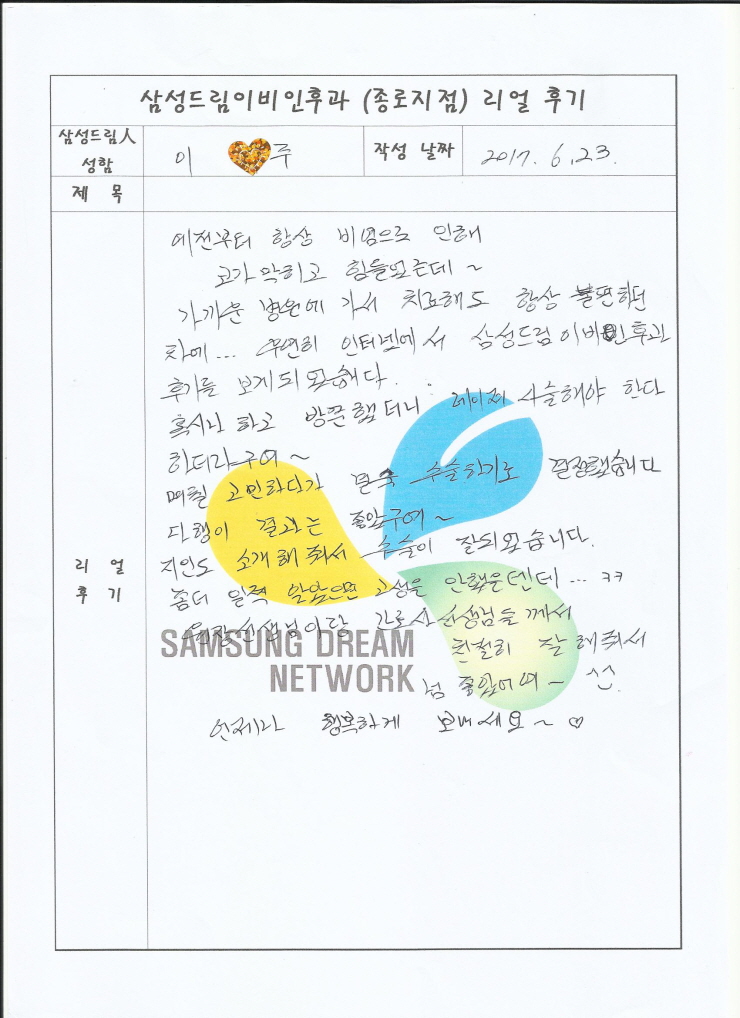 삼성드림이비인후과 (종로지점) 리얼 후기
삼성드림人 성함
이 주
작성 날짜
2017. 6. 23.
제 목
리 얼 후 기
예전부터 항상 비염으로 인해
코가 막히고 힘들었는데~
가까운 병원에 가서 치료해도 항상 불편하던
차에... 우연히 인터넷에서 삼성드림이비인후과
후기를 보게되었습니다.
혹시나 하고 방문했더니 레이저 수술해야 한다
하더라구여~
며칠 고민하다가 결국 수술하기로 결정했습니다
다행이 결과는 좋았구여~
지인도 소개해 줘서 수술이 잘되었습니다.
좀더 일찍 알았으면 고생을 안했을텐데... ㅋㅋ
원장선생님이랑 간호사선생님들께서
친절히 잘 해줘서
넘 좋았어여~ ^^.
언제나 행복하게 보내세요~ ♡
SAMSUNG DREAM
NETWORK